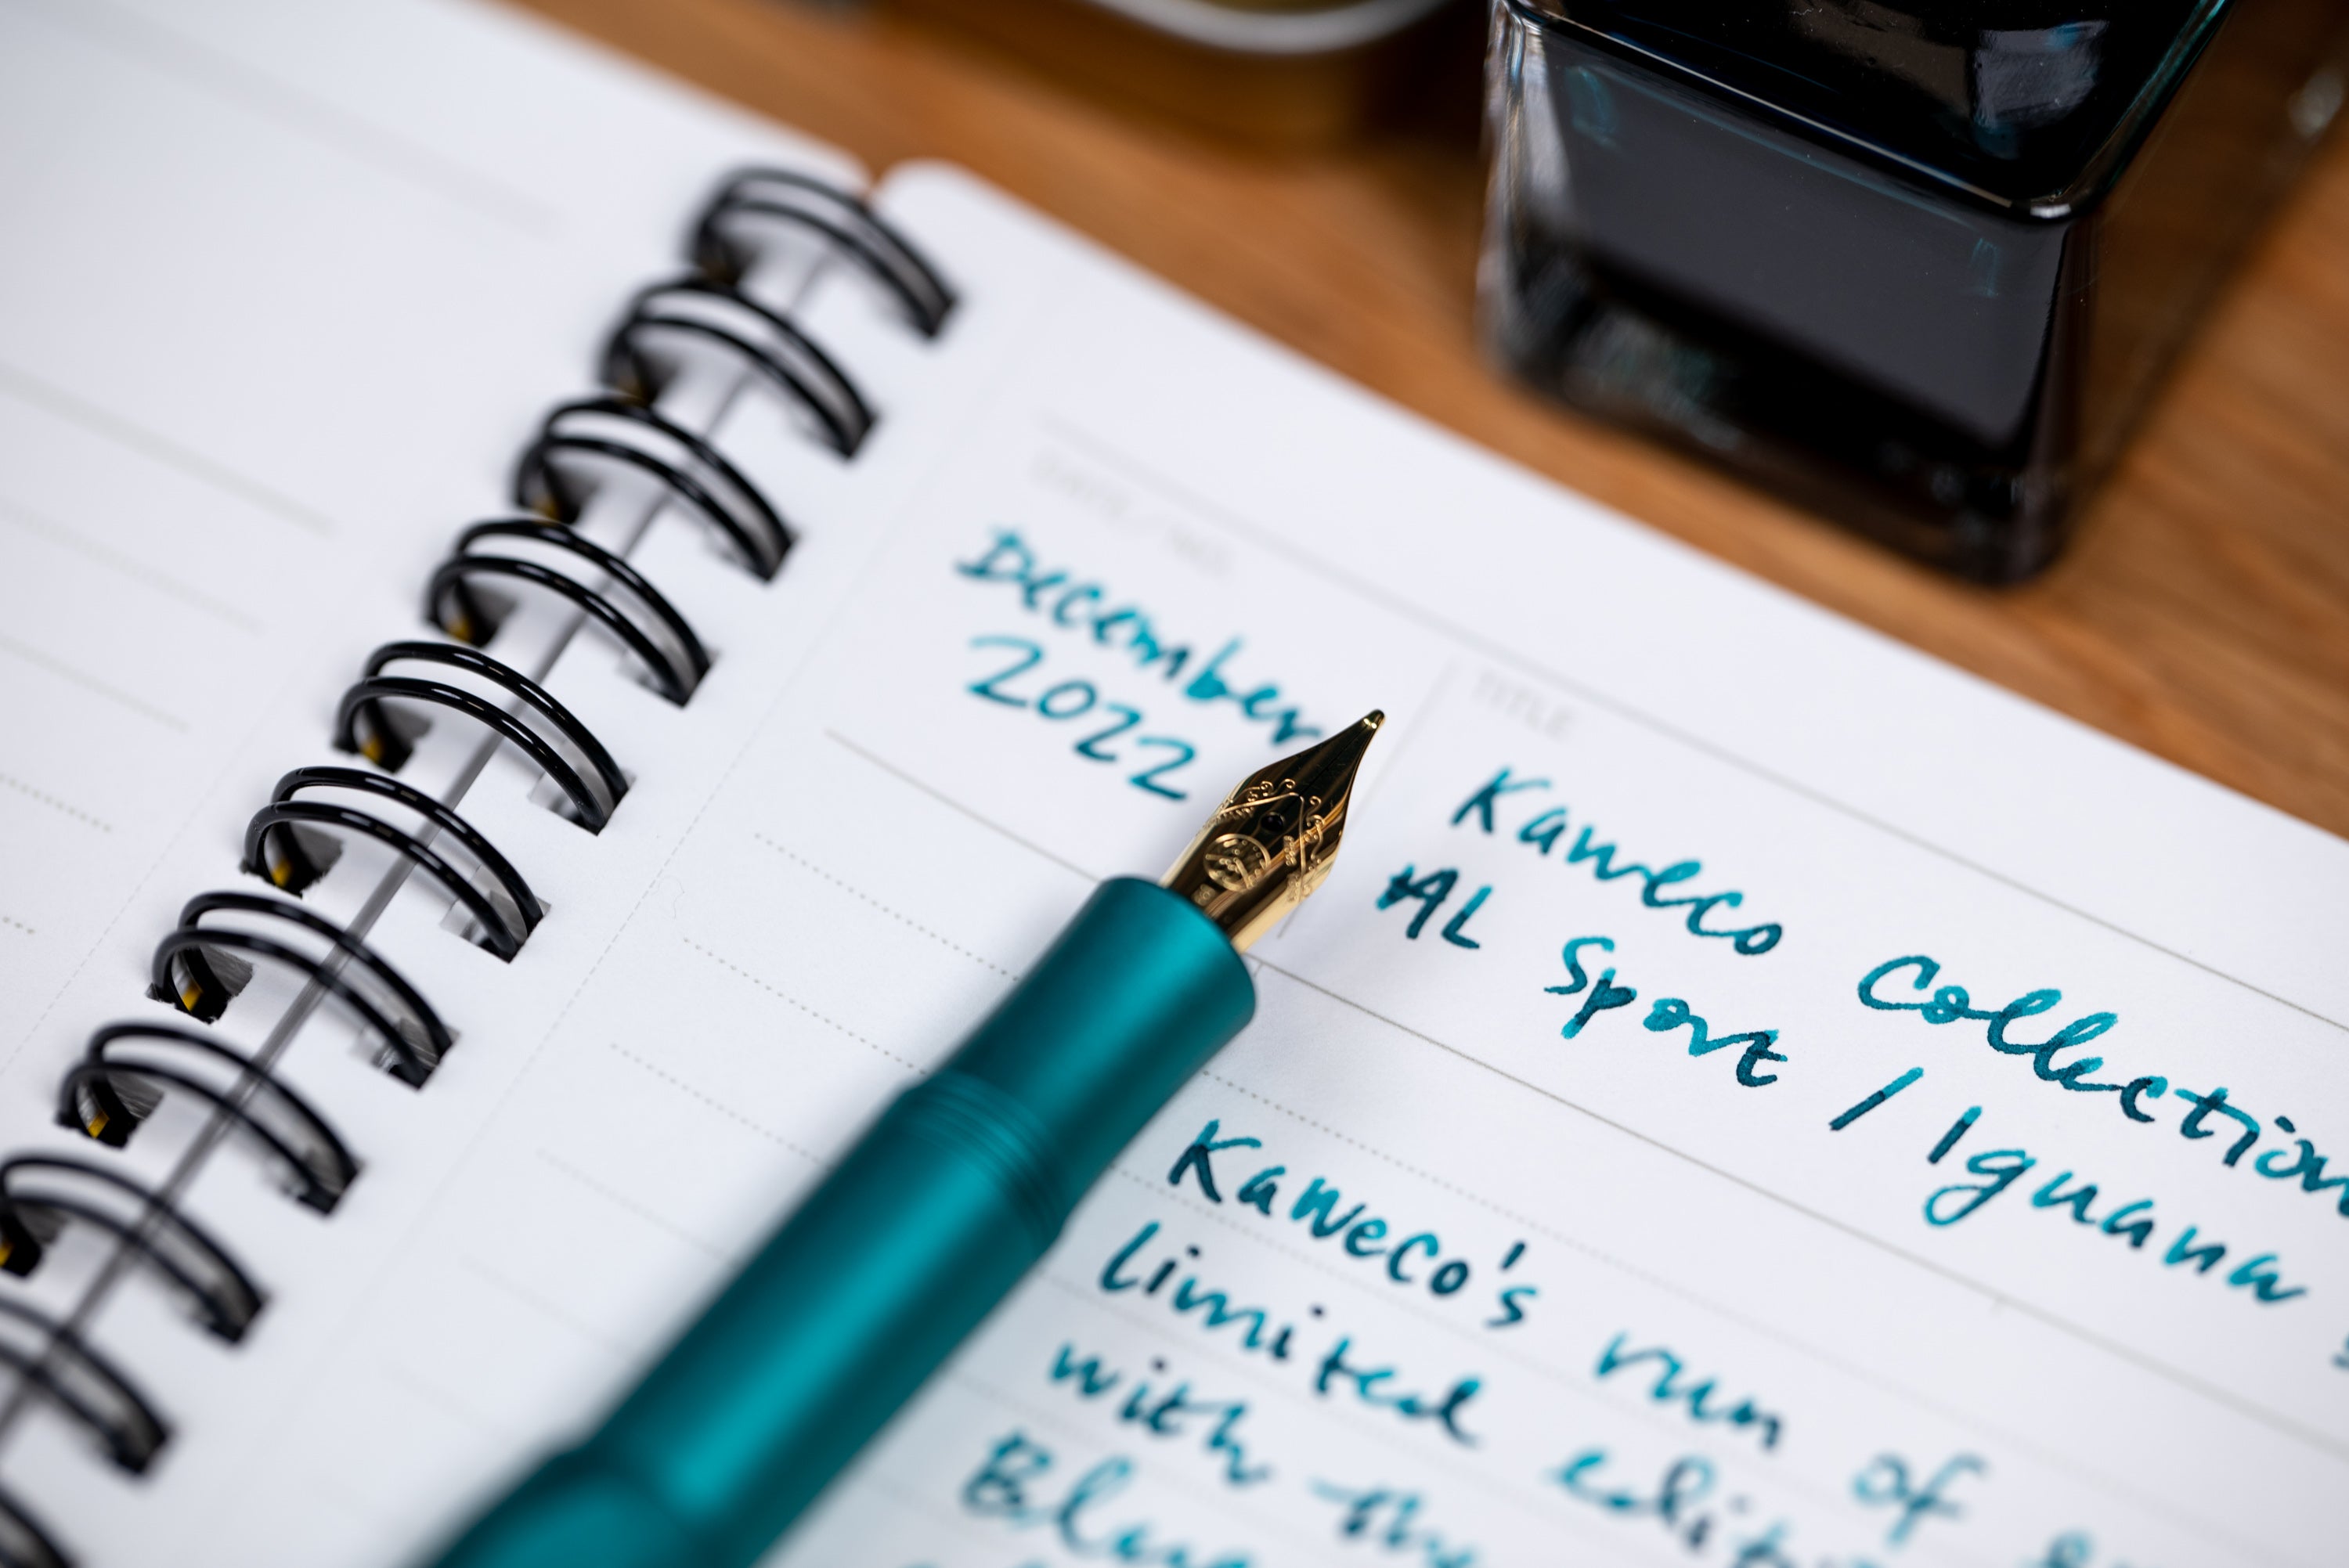 DATE / NO.
December
2022
TITLE
Kaweco Collection
AL Sport / Iguana
Kaweco's run of
limited
with the